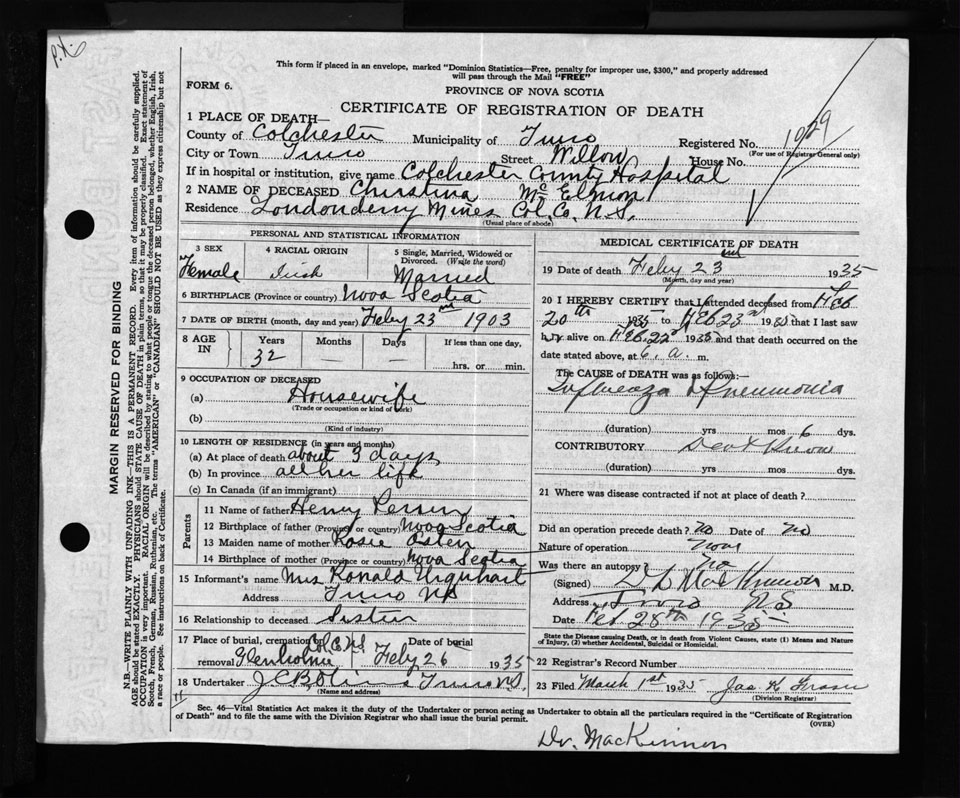 P.X.
This form if placed in an envelope, marked "Dominion Statistics—Free, penalty for improper use, $300," and properly addressed
will pass through the Mail "FREE"
FORM 6.
PROVINCE OF NOVA SCOTIA
CERTIFICATE OF REGISTRATION OF DEATH
1 PLACE OF DEATH—
County of Colchester Municipality of Truro Registered No. 1029
(For use of Registrar General only)
City or Town Truro Street Willow House No.
If in hospital or institution, give name Colchester County Hospital
2 NAME OF DECEASED Christina McElmon
Residence Londonderry Mines Col. Co. N.S.
(Usual place of abode)
PERSONAL AND STATISTICAL INFORMATION
3 SEX 4 RACIAL ORIGIN 5 Single, Married, Widowed or Divorced. (Write the word)
Female Irish Married
6 BIRTHPLACE (Province or country) Nova Scotia
7 DATE OF BIRTH (month, day and year) Feby 23rd 1903
8 AGE IN Years Months Days If less than one day,
32 — — hrs. or min.
9 OCCUPATION OF DECEASED
(a) Housewife
(Trade or occupation or kind of work)
(b)
(Kind of industry)
10 LENGTH OF RESIDENCE (in years and months)
(a) At place of death about 3 days
(b) In province all her life
(c) In Canada (if an immigrant)
Parents
11 Name of father Henry
12 Birthplace of father (Province or country) Nova Scotia
13 Maiden name of mother Rosie
14 Birthplace of mother (Province or country) Nova Scotia
15 Informant's name Mrs Ronald Urquhart
Address Truro NS
16 Relationship to deceased Sister
17 Place of burial, cremation Col. Co. NS Date of burial
removal Glenholme Feby 26 1935
18 Undertaker Truro N.S.
(Name and address)
MEDICAL CERTIFICATE OF DEATH
19 Date of death Feby 23 1935
(Month, day and year)
20 I HEREBY CERTIFY that I attended deceased from Feb
20th 1935 to Feb 23rd 1935 that I last saw
her alive on Feb. 22nd 1935 and that death occurred on
date stated above, at 6. a. m.
The CAUSE of DEATH was as follows:—
Influenza Pneumonia
(duration) yrs mos 6 dys.
CONTRIBUTORY Dont Know
(duration) yrs mos dys.
21 Where was disease contracted if not at place of death?
Did an operation precede death? no Date of no
Nature of operation None
Was there an autopsy? No
(Signed) D L MacKinnon M.D.
Address Truro N.S
Date Feb 28th 1935
State the Disease causing Death, or in death from Violent Causes, state (1) Means and Nature of Injury, (2) whether Accidental, Suicidal or Homicidal.
22 Registrar's Record Number
23 Filed March 1st 1935 Jas H Fraser
(Division Registrar)
Sec. 46—Vital Statistics Act makes it the duty of the Undertaker or person acting as Undertaker to obtain all the particulars required in the "Certificate of Registration
of Death" and to file the same with the Division Registrar who shall issue the burial permit.
(OVER)
Dr. MacKinnon
MARGIN RESERVED FOR BINDING
N.B.—WRITE PLAINLY WITH UNFADING INK—THIS IS A PERMANENT RECORD. Every item of information should be carefully supplied.
AGE should be stated EXACTLY. PHYSICIANS should STATE CAUSE OF DEATH in plain terms, so that it may be properly classified. Exact statement of
OCCUPATION is very important. RACIAL ORIGIN will be described by stating to what people or tongue the deceased person belonged, whether English, Irish,
Scotch, French, German, Russian, Ruthenian, etc. The terms "AMERICAN" or "CANADIAN" SHOULD NOT BE USED as they express citizenship but not
a race or people. See instructions on back of Certificate.